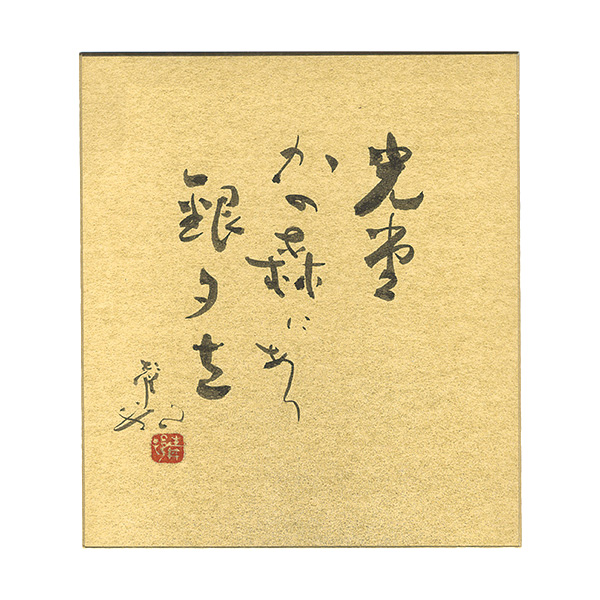 光堂
かの森にあり
銀夕立
青邨